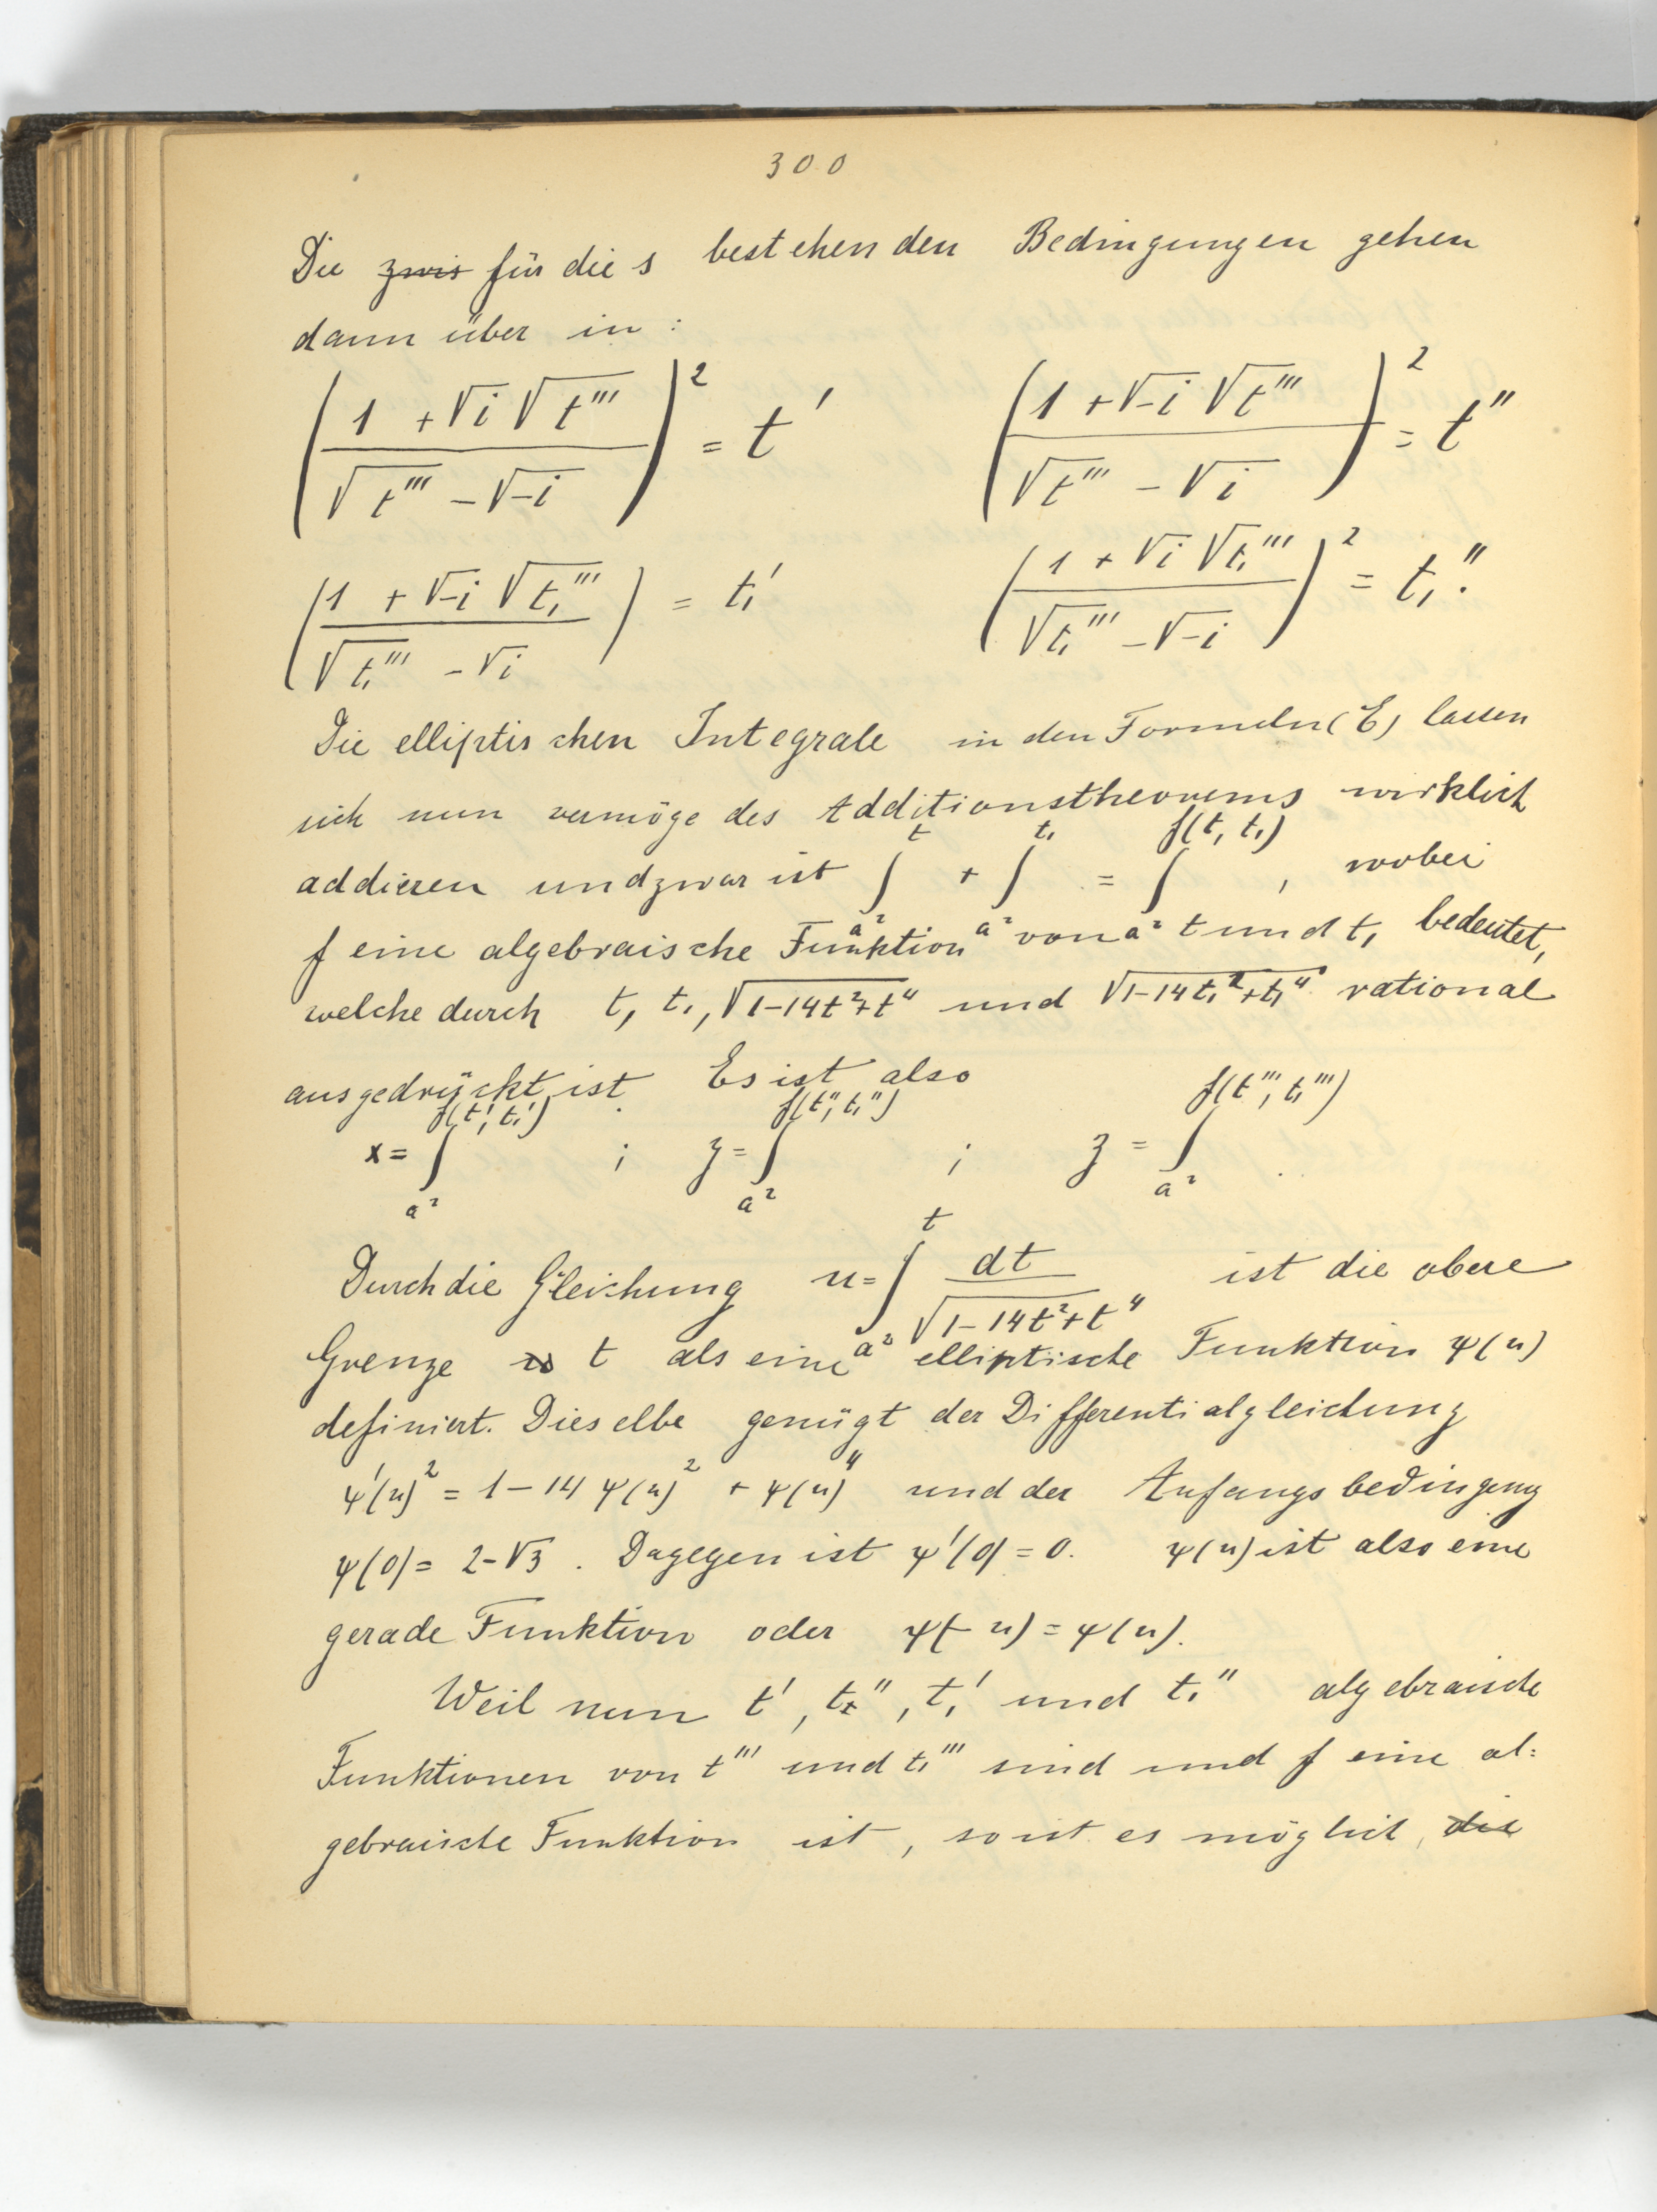 300
Die zwis für die s bestehenden Bedingungen gehen
dann über in :
((1 + √i √t''')/(√t''' - √-i))² = t'    ((1 + √-i √t''')/(√t''' - √i))² = t''
((1 + √-i √t₁''')/(√t₁''' - √i)) = t₁'    ((1 + √i √t₁''')/(√t₁''' - √-i))² = t₁''.
Die elliptischen Integrale in den Formeln (E) lassen
sich nun vermöge des Additionstheorems wirklich
addieren und zwar ist ∫_{a²}^{t} + ∫_{a²}^{t₁} = ∫_{a²}^{f(t, t₁)} , wobei
f eine algebraische Funktion von t und t₁ bedeutet,
welche durch t, t₁, √(1-14t²+t⁴) und √(1-14t₁²+t₁⁴) rational
ausgedrückt ist. Es ist also
x = ∫_{a²}^{f(t', t₁')} ; y = ∫_{a²}^{f(t'', t₁'')} ; z = ∫_{a²}^{f(t''', t₁''')} .
Durch die Gleichung u = ∫_{a²}^{t} dt/√(1-14t²+t⁴) ist die obere
Grenze t als eine elliptische Funktion ψ(u)
definiert. Dieselbe genügt der Differentialgleichung
ψ'(u)² = 1 - 14 ψ(u)² + ψ(u)⁴ und der Anfangsbedingung
ψ(0) = 2-√3 . Dagegen ist ψ'(0) = 0. ψ(u) ist also eine
gerade Funktion oder ψ(-u) = ψ(u).
Weil nun t', t'', t₁' und t₁'' algebraische
Funktionen von t''' und t₁''' sind und f eine al=
gebraische Funktion ist, so ist es möglich, die